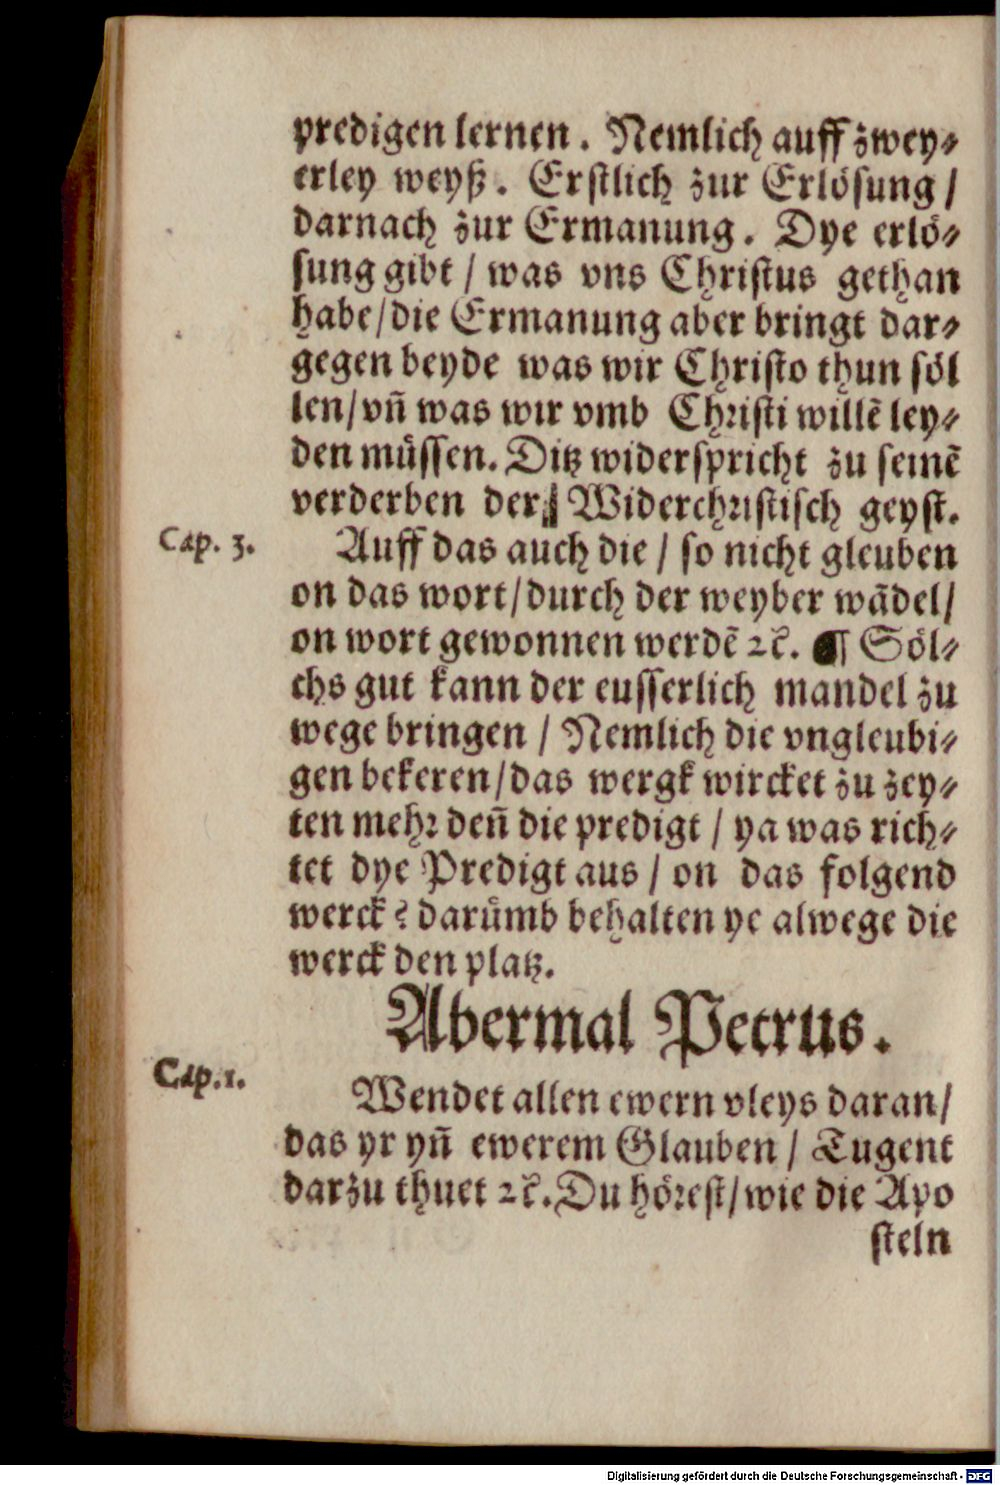 predigen lernen. Nemlich auff zwey⸗
erley weyß. Erstlich zur Erlösung /
darnach zur Ermanung. Dye erlö⸗
sung gibt / was vns Christus gethan
habe/die Ermanung aber bringt dar⸗
gegen beyde was wir Christo thun söl
len/vñ was wir vmb Christi willẽ ley⸗
den müssen. Ditz widerspricht zu seinẽ
verderben der Widerchristisch geyst.
Cap. 3.
Auff das auch die / so nicht gleuben
on das wort/durch der weyber wãdel/
on wort gewonnen werdẽ ꝛc. ¶ Söl⸗
chs gut kann der eusserlich mandel zu
wege bringen / Nemlich die vngleubi⸗
gen bekeren/das wergk wircket zu zey⸗
ten mehr deñ die predigt / ya was rich⸗
tet dye Predigt aus / on das folgend
werck? darümb behalten ye alwege die
werck den platz.
Abermal Petrus.
Cap.1.
Wendet allen ewern vleys daran/
das yr yñ ewerem Glauben / Tugent
darzu thuet ꝛc. Du hörest/wie die Apo
steln
Digitalisierung gefördert durch die Deutsche Forschungsgemeinschaft - DFG